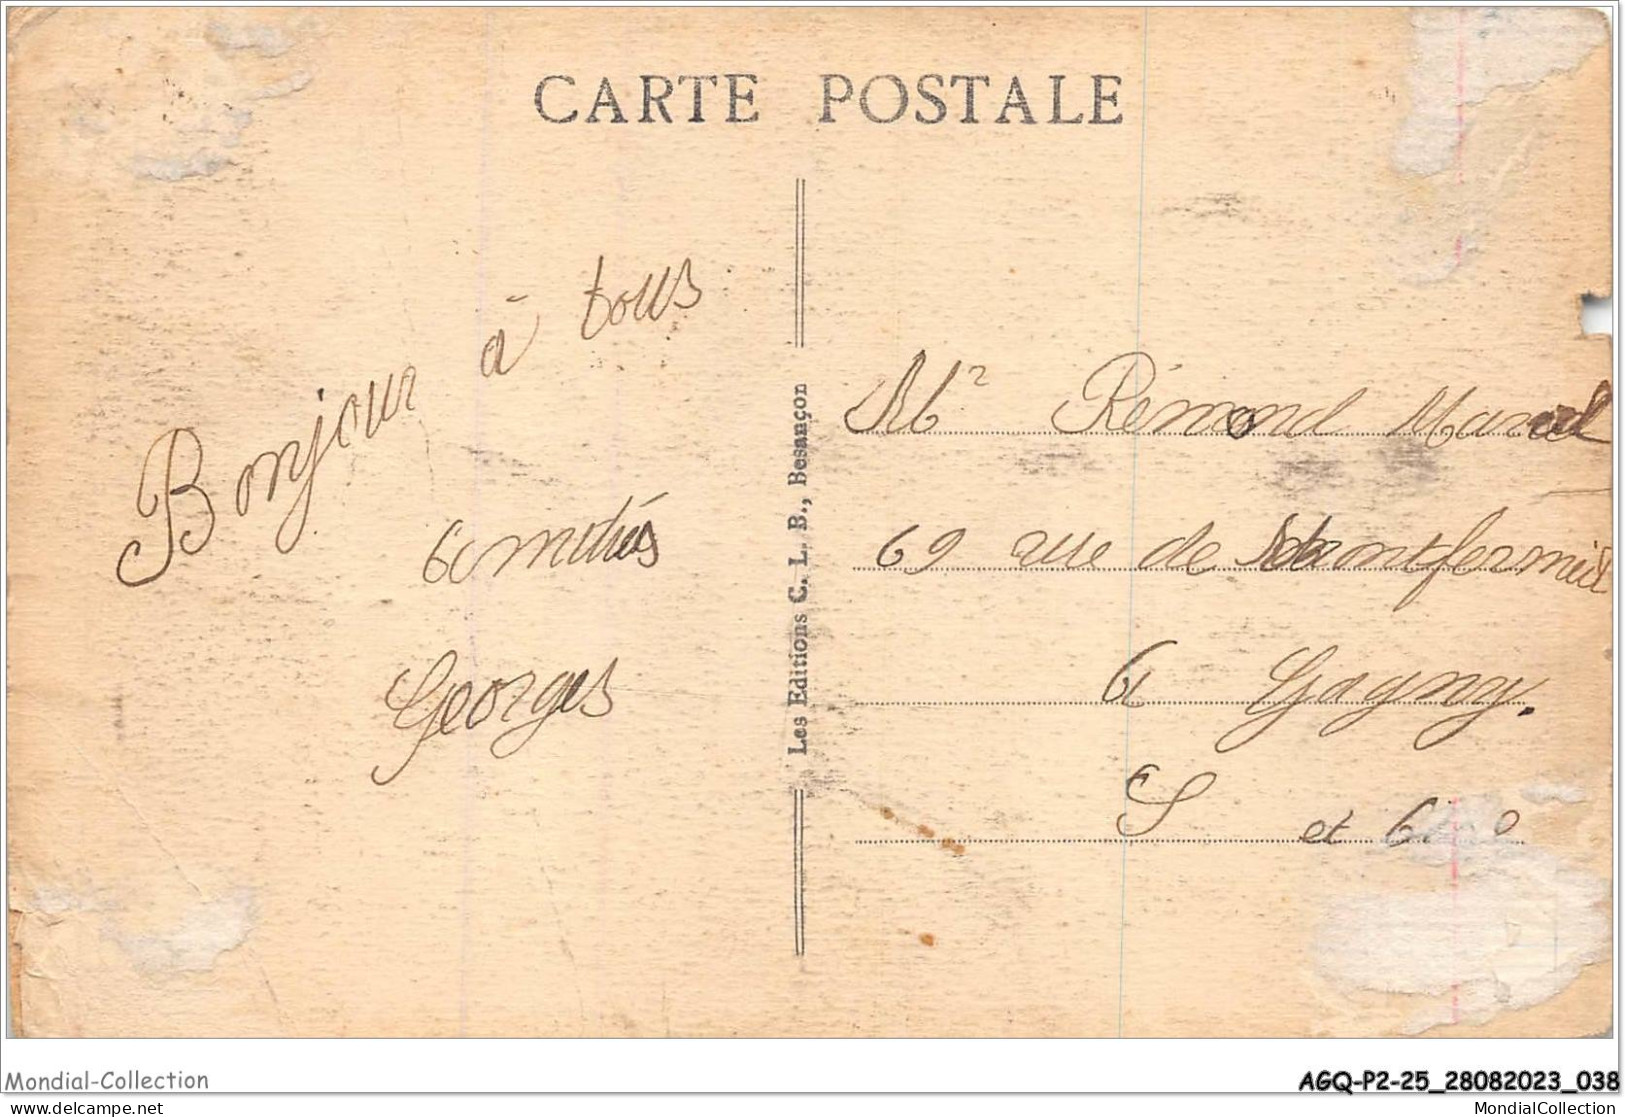 CARTE POSTALE
Bonjour à tous
amitiés
Georges
Les Editions C. L. B., Besançon
Mr Rémond Marcel
69 rue de Montfermeil
à Gagny.
S et O
Mondial-Collection
AGQ-P2-25_28082023_038
www.delcampe.net
MondialCollection